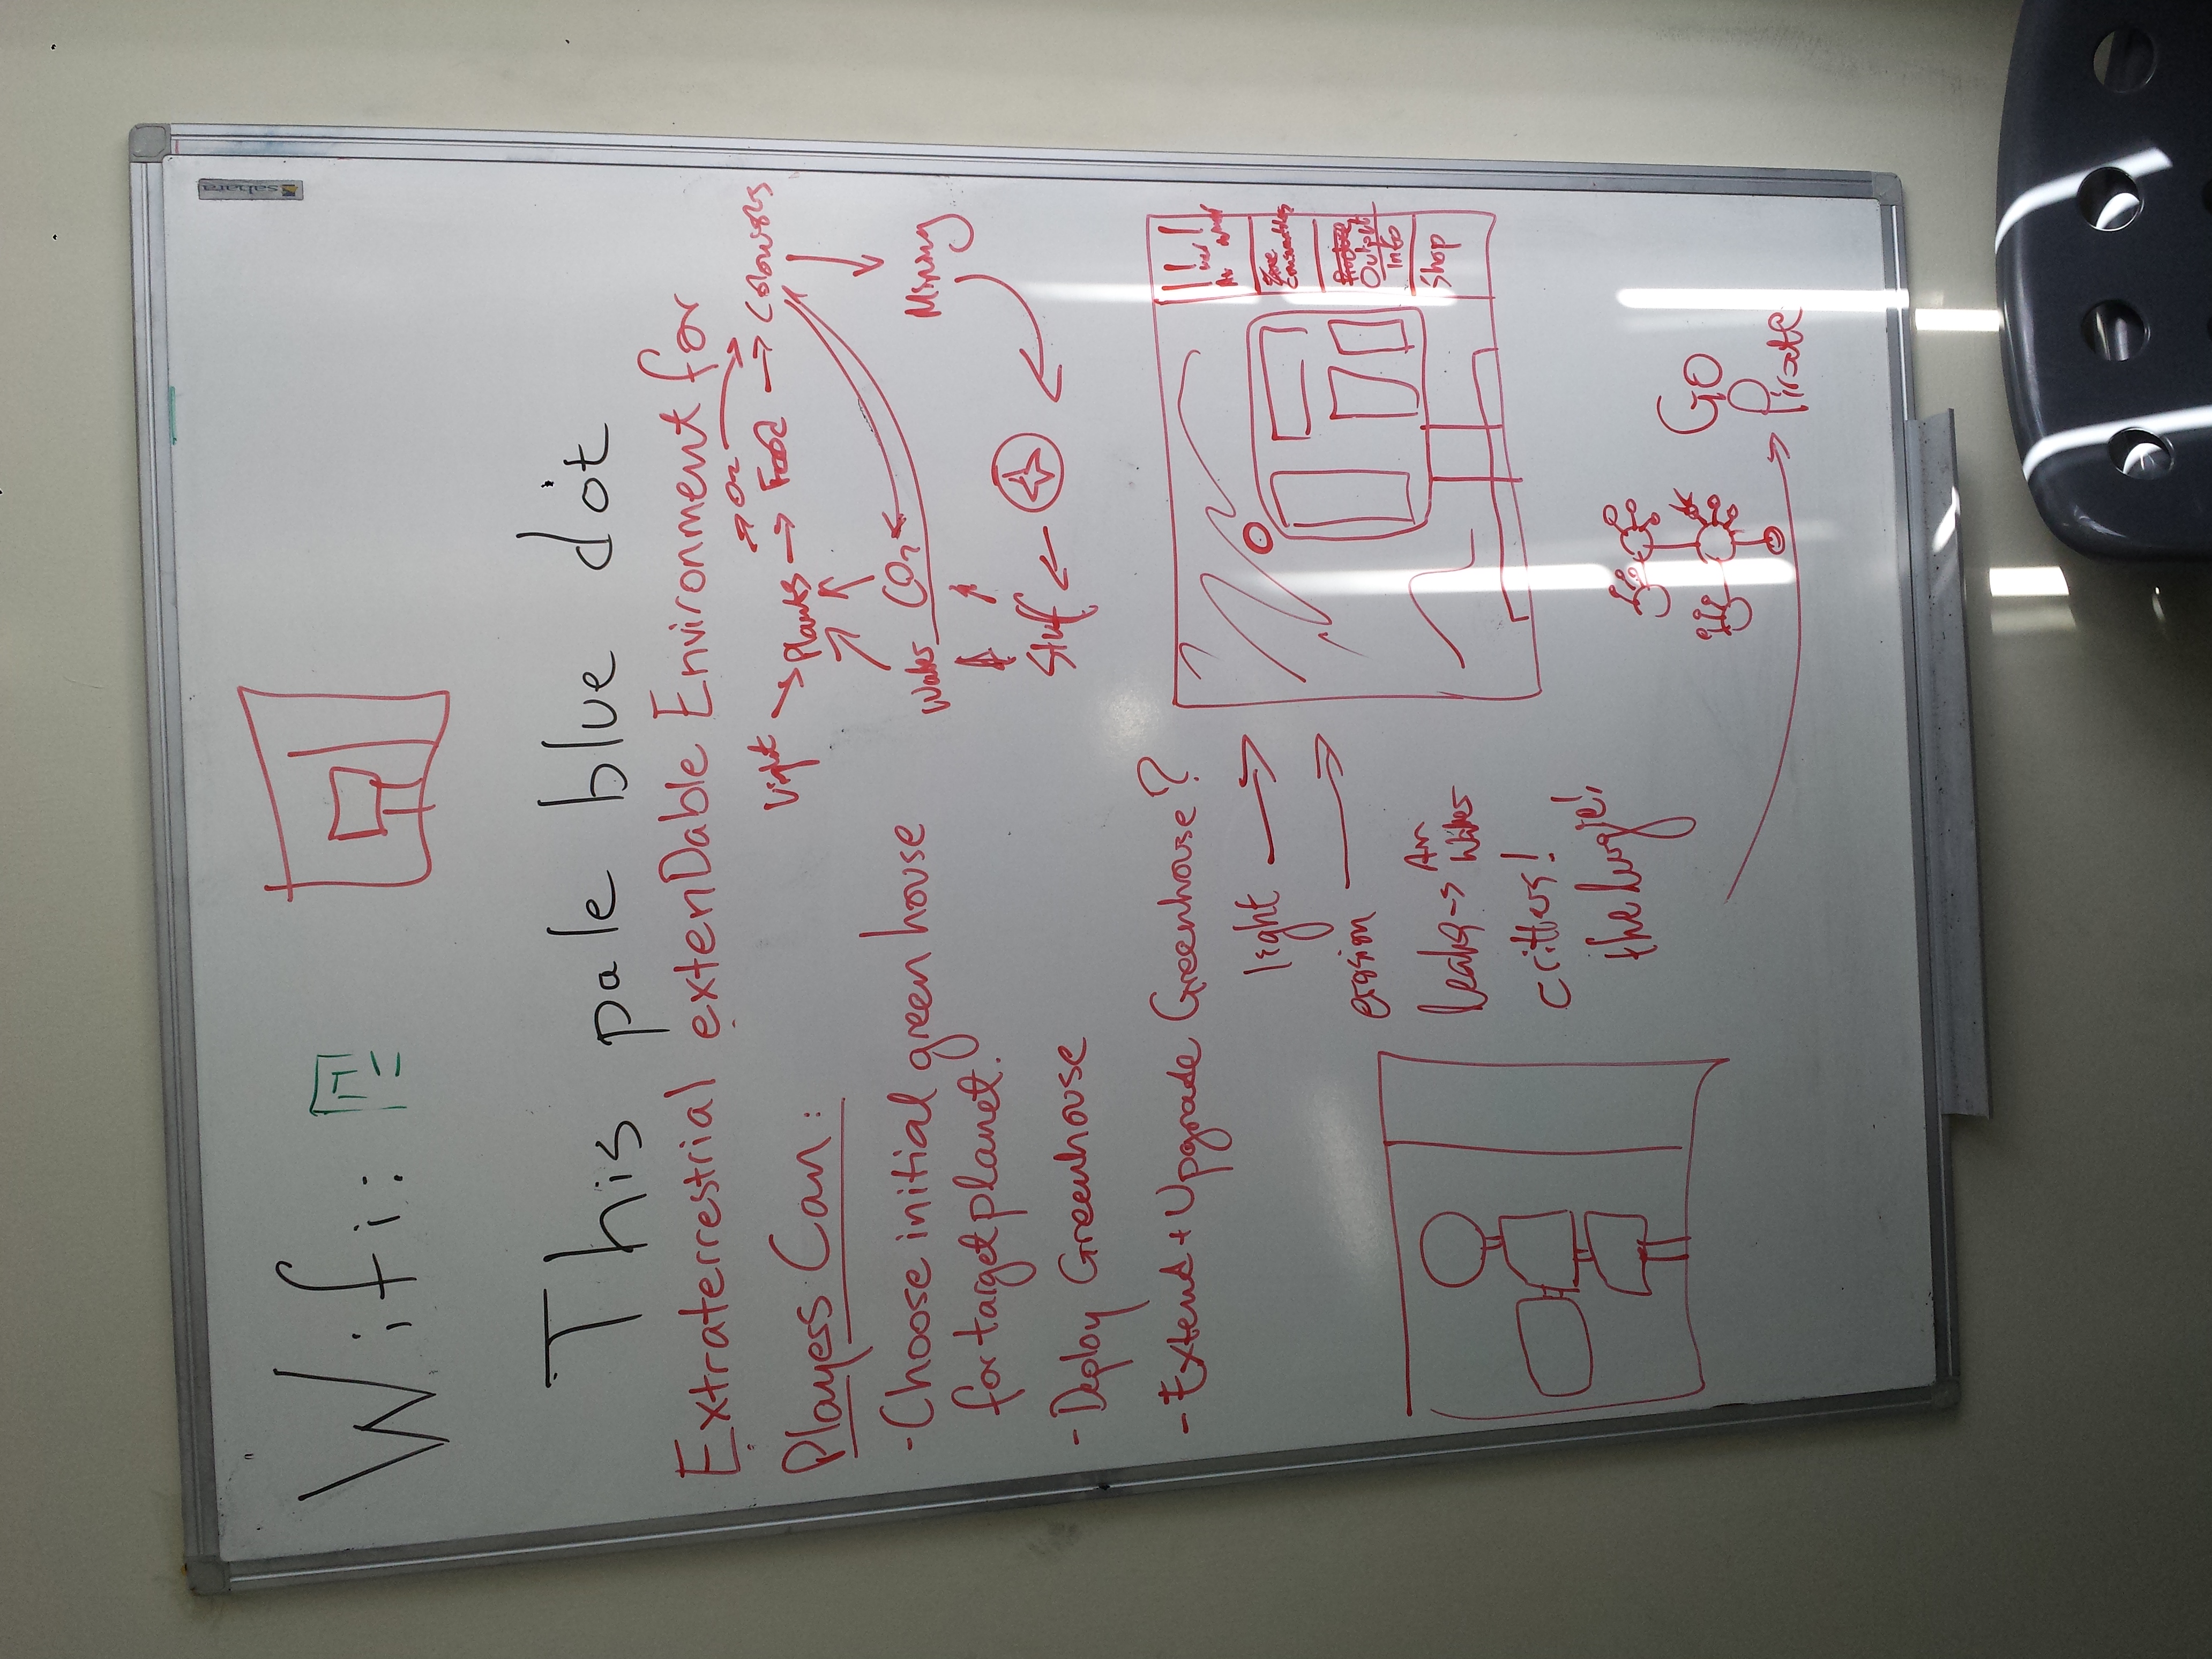 sahara
Wifi:
This pale blue dot
Extraterrestrial extenDable Environment for
Players Can:
- Choose initial green house
for target planet.
- Deploy Greenhouse
- Extend + Upgrade Greenhouse?
Light → Plants → Food → Colonists
O2
Water CO2
Mining
Stuff
light
erosion
leaks → Air
Water
critters!
the lurgie!
Consumables
Output
Info
Shop
Go
Pirate